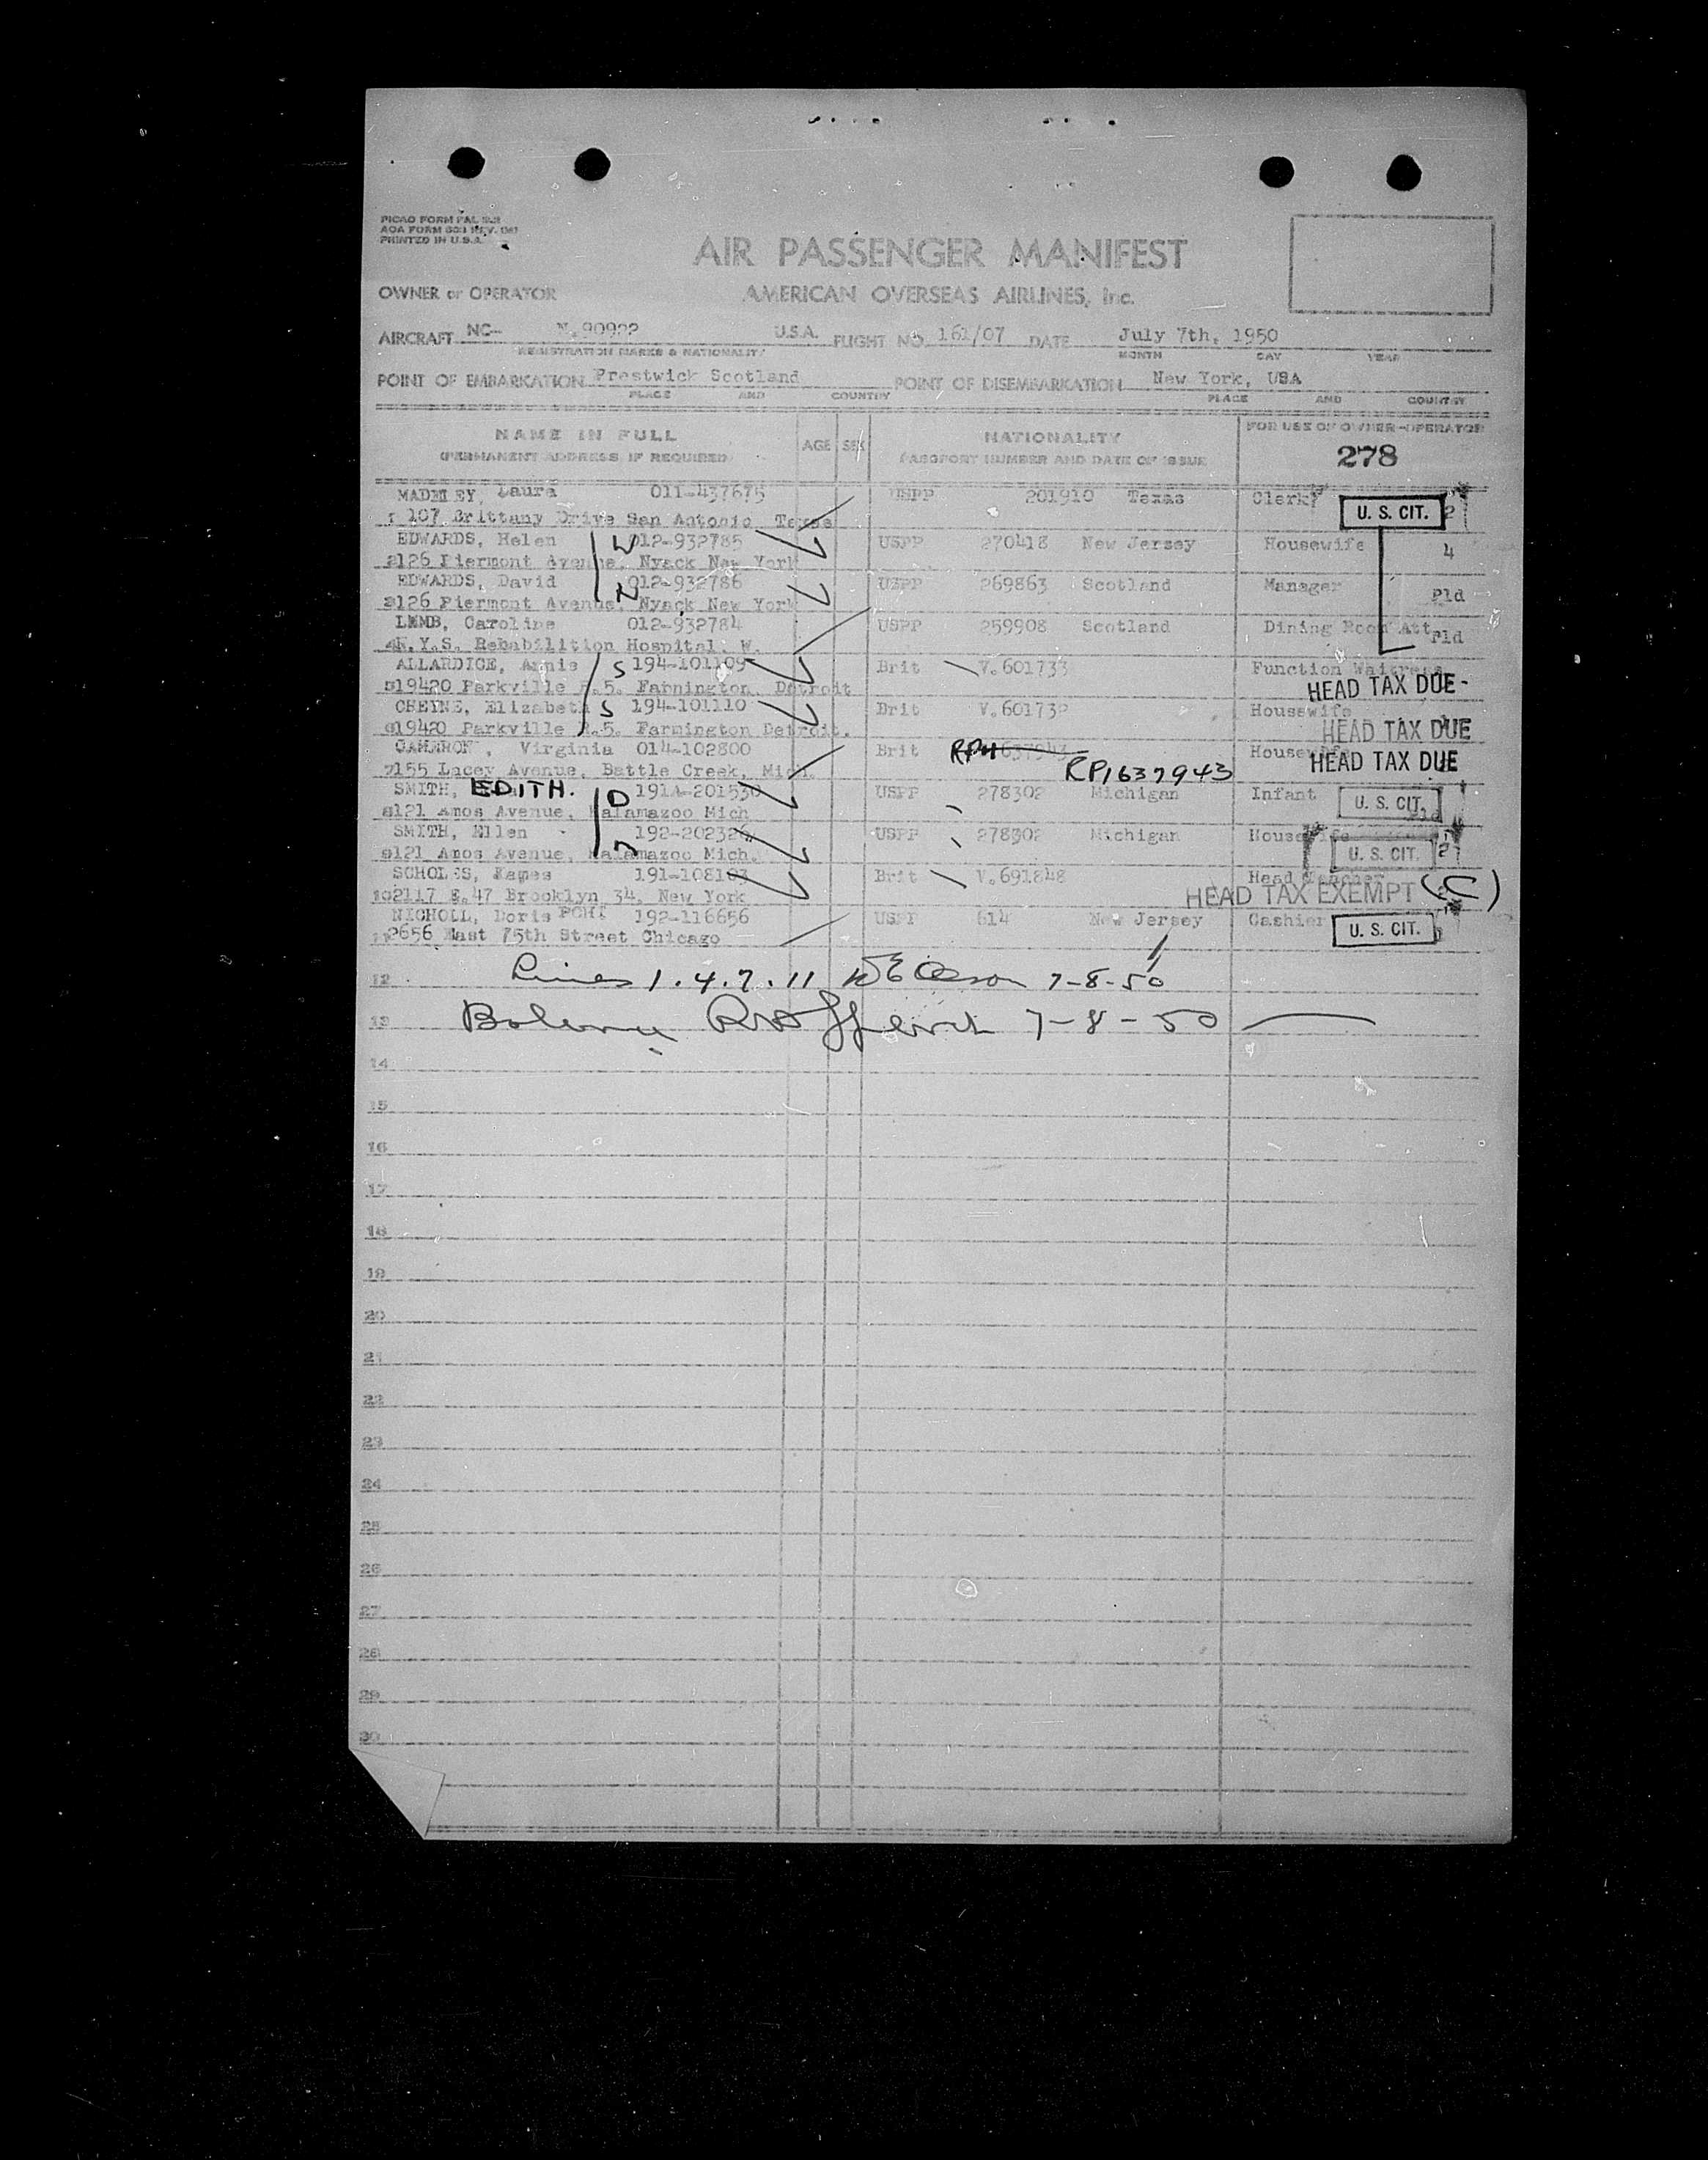 PICAO FORM PAL
AOA FORM REV.
PRINTED IN U.S.A.
AIR PASSENGER MANIFEST
OWNER or OPERATOR AMERICAN OVERSEAS AIRLINES, Inc.
AIRCRAFT NC- N.90922 U.S.A. FLIGHT NO. 161/07 DATE July 7th, 1950
REGISTRATION MARKS & NATIONALITY MONTH DAY YEAR
POINT OF EMBARKATION Prestwick Scotland POINT OF DISEMBARKATION New York, USA
PLACE AND COUNTRY PLACE AND COUNTRY
NAME IN FULL AGE SEX NATIONALITY FOR USE OF OWNER-OPERATOR
(PERMANENT ADDRESS IF REQUIRED) PASSPORT NUMBER AND DATE OF ISSUE 278
MADELEY, Laura 011-437675 USPP 201910 Texas Clerk U. S. CIT. 2
1 107 Brittany Drive San Antonio Texas
EDWARDS, Helen W 012-932785 USPP 270418 New Jersey Housewife 4
2 126 Piermont Avenue, Nyack New York
EDWARDS, David 012-932786 USPP 269863 Scotland Manager Pld
3 126 Piermont Avenue, Nyack New York
LAMB, Caroline 012-932784 USPP 259908 Scotland Dining Room Att Pld
4 N.Y.S. Rehabilition Hospital. W.
ALLARDICE, Annis S 194-101109 Brit V.601733 Function Waitress
5 19420 Parkville R.5. Farnington, Detroit HEAD TAX DUE-
CHEYNE, Elizabeth S 194-101110 Brit V.601732 Housewife
6 19420 Parkville R.5. Farmington Detroit. HEAD TAX DUE
CAMERON, Virginia 014-102800 Brit RP4 637943 Housewife HEAD TAX DUE
7 155 Lacey Avenue, Battle Creek, Mich. RP1637943
SMITH, EDITH. D 191A-201530 USPP 278302 Michigan Infant U. S. CIT.
8 121 Amos Avenue, Kalamazoo Mich Pld
SMITH, Ellen 192-202326 USPP 278302 Michigan Housewife
9 121 Amos Avenue, Kalamazoo Mich. U. S. CIT. 2
SCHOLES, James 191-108103 Brit V.691848 Head
10 2117 E.47 Brooklyn 34, New York HEAD TAX EXEMPT (C)
NICHOLL, Doris PCHI 192-116656 USPP 614 New Jersey Cashier U. S. CIT.
11 2656 East 75th Street Chicago
12 Lines 1.4.7.11 7-8-50
13 7-8-50
14
15
16
17
18
19
20
21
22
23
24
25
26
27
28
29
30